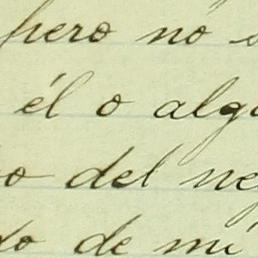 pero no
él o alg
o del ne
do de mi